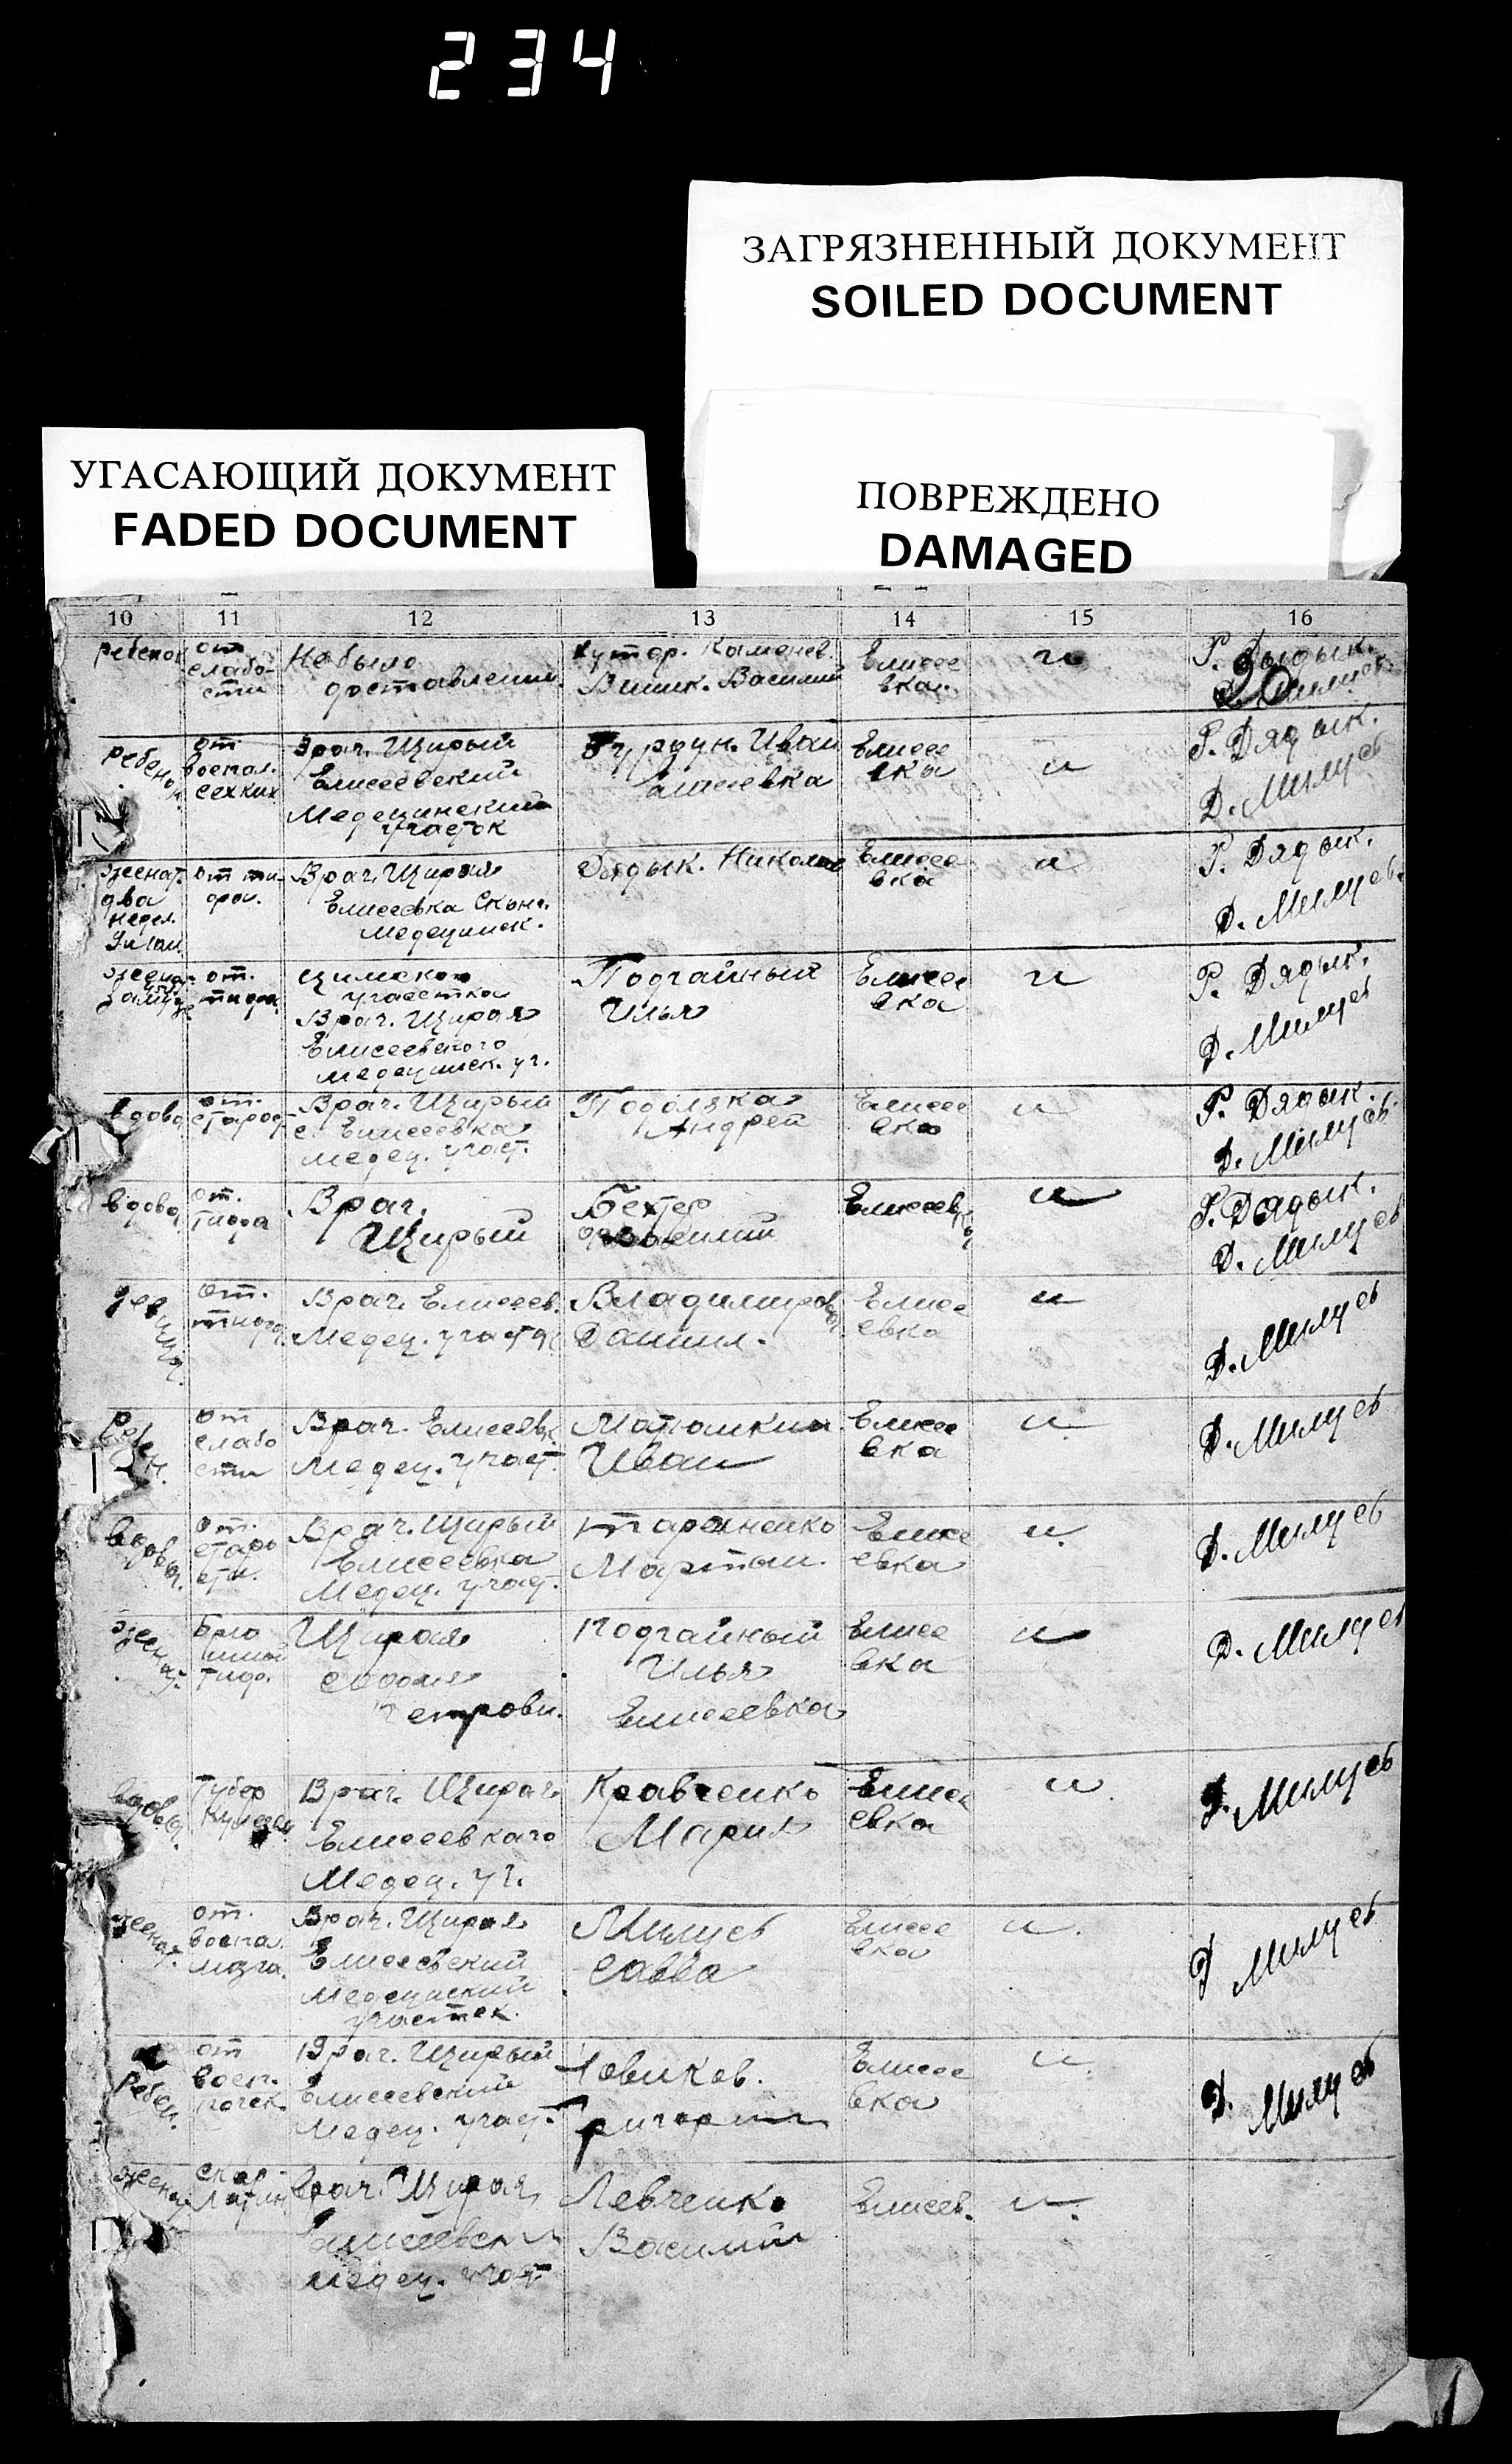 234
ЗАГРЯЗНЕННЫЙ ДОКУМЕНТ
SOILED DOCUMENT
УГАСАЮЩИЙ ДОКУМЕНТ
FADED DOCUMENT
ПОВРЕЖДЕНО
DAMAGED
10 11 12 13 14 15 16
ребенок
от
слабо-
сти
Не было
доставлении
хутор. Каменев.
Василий
Елисее
вка.
и
26
ребенок.
от
воспал.
Врач. Щирый
Елисеевский
Медецинский
участок
Иван
Елисее
вка
и
Р. Дядык.
Д. Милуев
женат.
два
недел.
от ти-
Врач. Щирая
Елисеевка
медецинск.
Дядык. Николай
Елисее
вка
и
Р. Дядык.
Д. Милуев.
от.
цинского
участка
Врач. Щирая
Елисеевского
медецинск. уч.
Подгайный
Илья
Елисее
вка
и
Р. Дядык.
Д. Милуев
вдова
от.
старос
Врач. Щирый
с. Елисеевка
медец. участ.
Подоляка
Андрей
Елисее
вка
и
Р. Дядык.
Д. Милуев.
вдова
от.
тифа
Врач.
Щирый
Бехтер
Елисеевка
и
Р. Дядык.
Д. Милуев
девица.
от.
тифа.
Врач. Елисеев.
Медец. участ
Владимирова
Данил.
Елисе
евка
и
Д. Милуев
Ребен.
от
слабо
сти
Врач. Елисеевк
Медец. участ.
Матюшкин
Иван
Елисее
вка
и
Д. Милуев
вдова.
от.
старо
сти.
Врач. Щирый
Елисеевка
Медец. участ.
Тараненко
Мартын.
Елисе
евка
и.
Д. Милуев
женат.
Брю
шной
тиф.
Щирая
Петровн.
Подгайный
Илья
Елисеевка
Елисее
вка
и
Д. Милуев
вдова.
Тубер
Врач. Щирая
Елисеевкаго
Медец. уч.
Кравченко
Мария
Елисе
евка
и.
Д. Милуев
женат.
от.
воспа.
мозга.
Врач. Щирая
Елисеевский
участек.
Милуев
Савва
Елисее
вка
и.
Д Милуев
Ребен.
от
восп.
почек.
Врач. Щирый
Елисеевский
Медец. участ.
Новиков.
Григорий
Елисее
вка
и.
Д. Милуев
женат
скар-
латин
Врач. Щирая
Медец. участ
Левченко
Василий
Елисеев.
и.